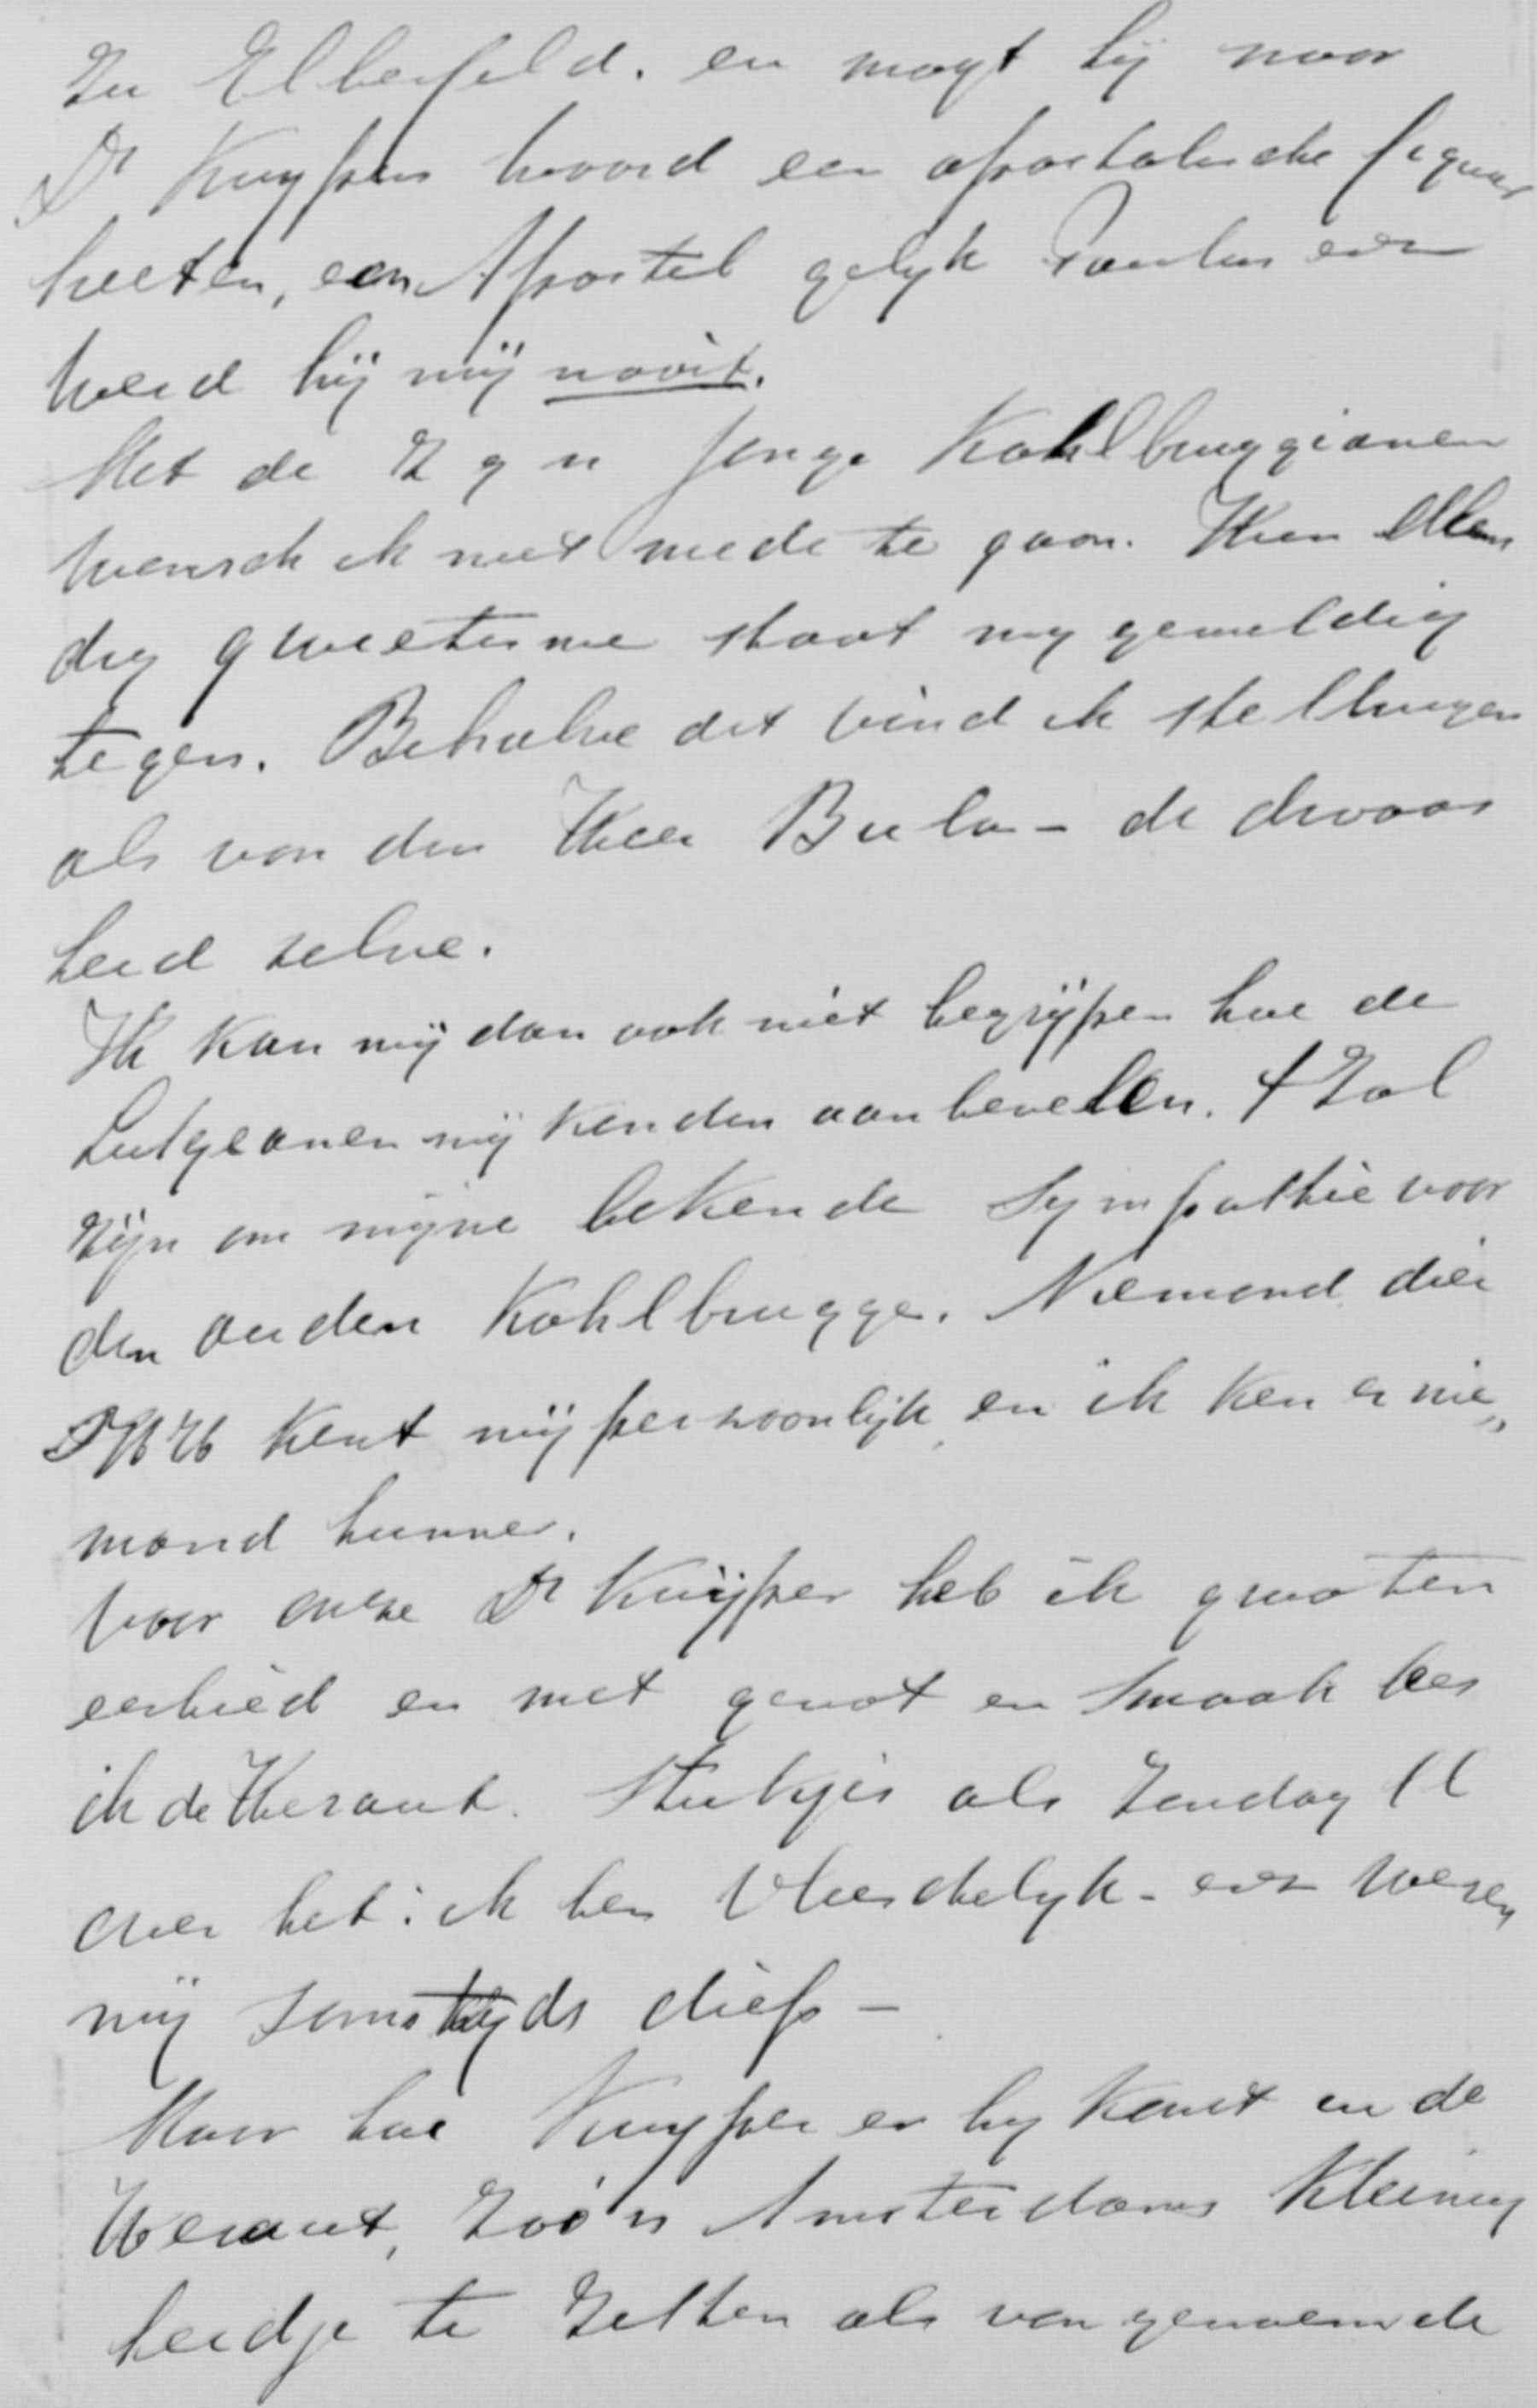 In Elberfeld. en mogt hij naar
Dr Kuypers woord een apostolische figuur
heeten, een Apostel gelyk Paulus enz
werd hij mij nooit.
Met de z g n jonge Kohlbruggianen
wensch ik niet mede te gaan. Hun ellen
dig quietisme staat my geweldig
tegen. Behalve dit vind ik stellingen
als van den Heer Bula - de dwaas
heid zelve.
Ik kan mij dan ook niet begrijpen hoe de
mij konden aanbevelen. t Zal
zijn om mijne bekende Sympathie voor
den ouden Kohlbrugge. Niemand dier
kent mij persoonlijk en ik ken er nie„
mand hunner.
Voor onze Dr Kuijper heb ik grooten
eerbied en met genot en smaak lees
ik de Heraut. Stukjes als Zondag ll
over het: ik ben Vleeschelyk - enz wezen
mij somstyds diep -
Maar hoe Kuyper er by komt in de
Heraut, zoo'n Amsterdams Kleinig
heidje te zetten als van genoemde